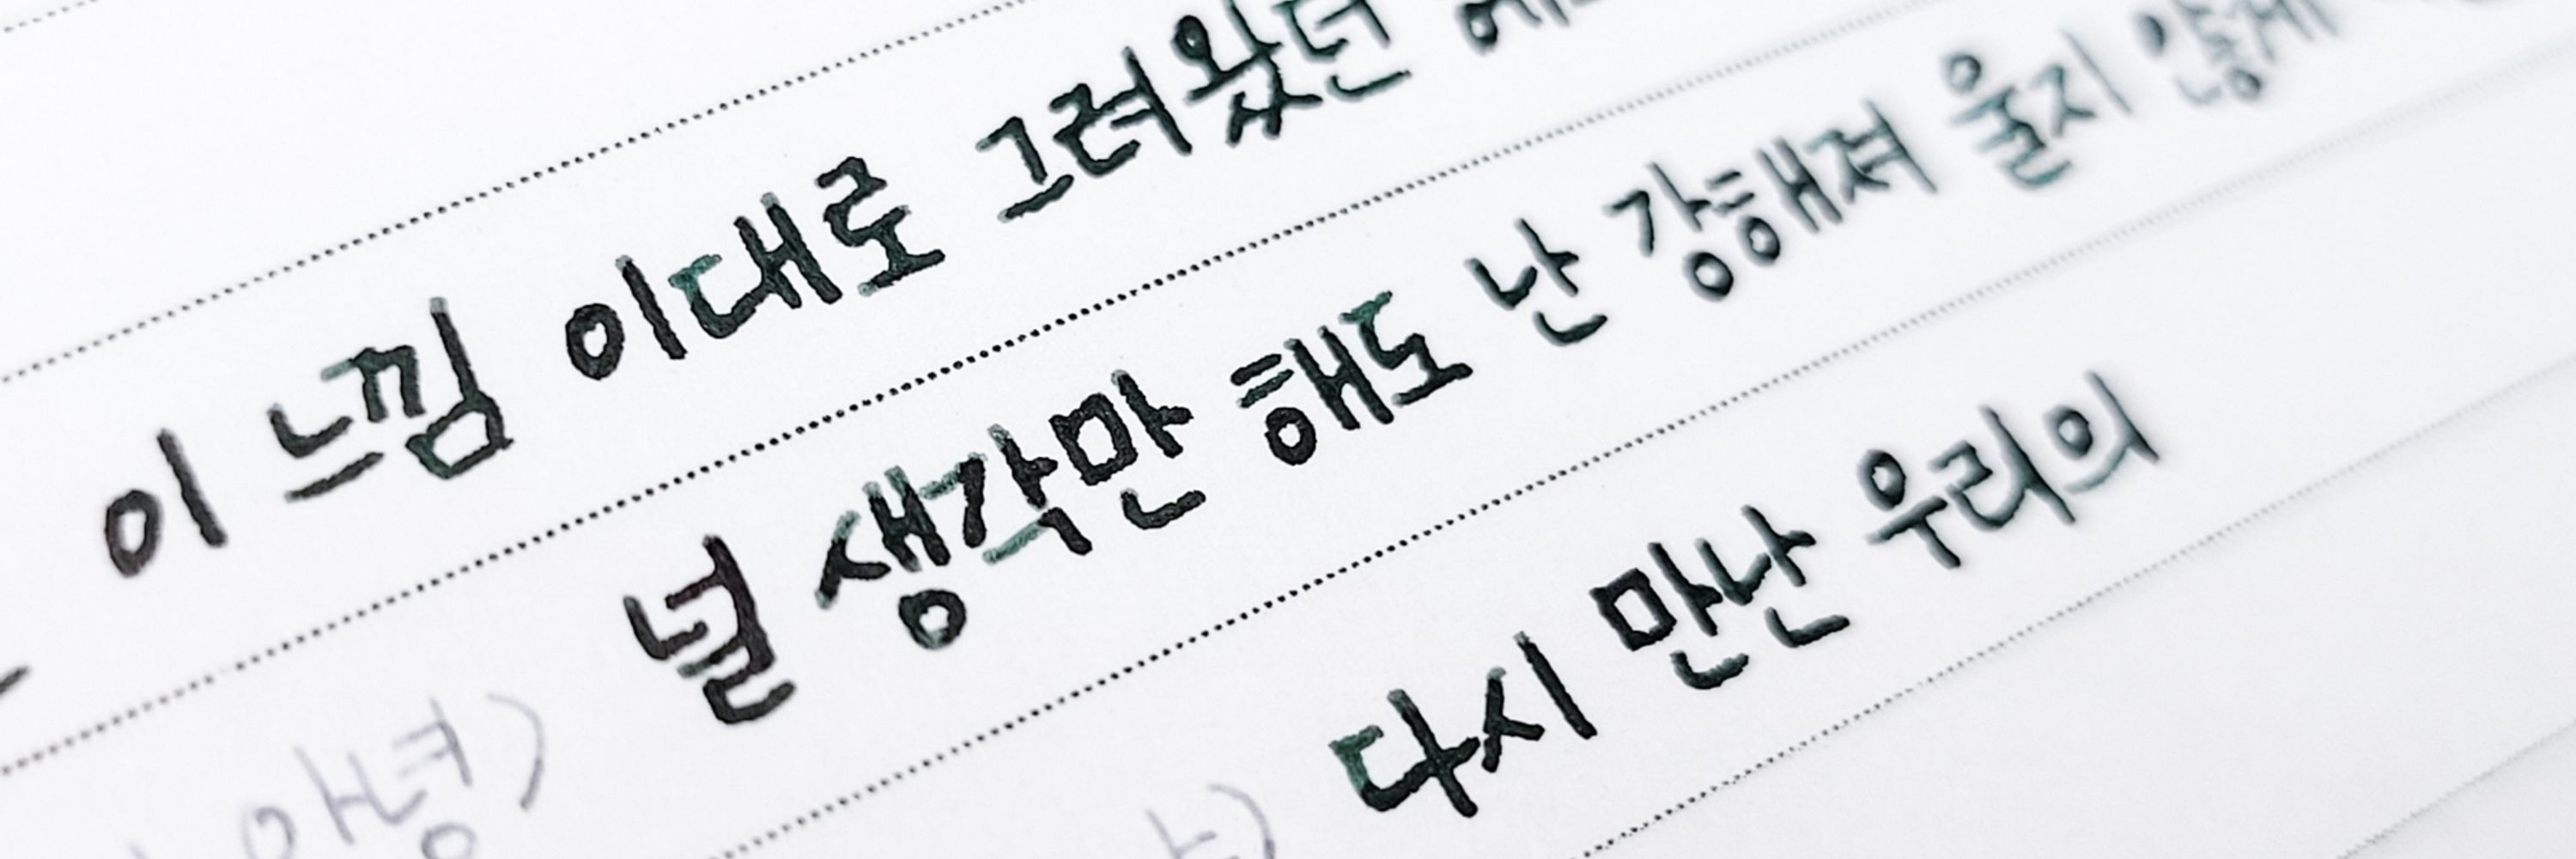 이 느낌 이대로 그려왔던
널 생각만 해도 난 강해져 울지 않게
다시 만난 우리의